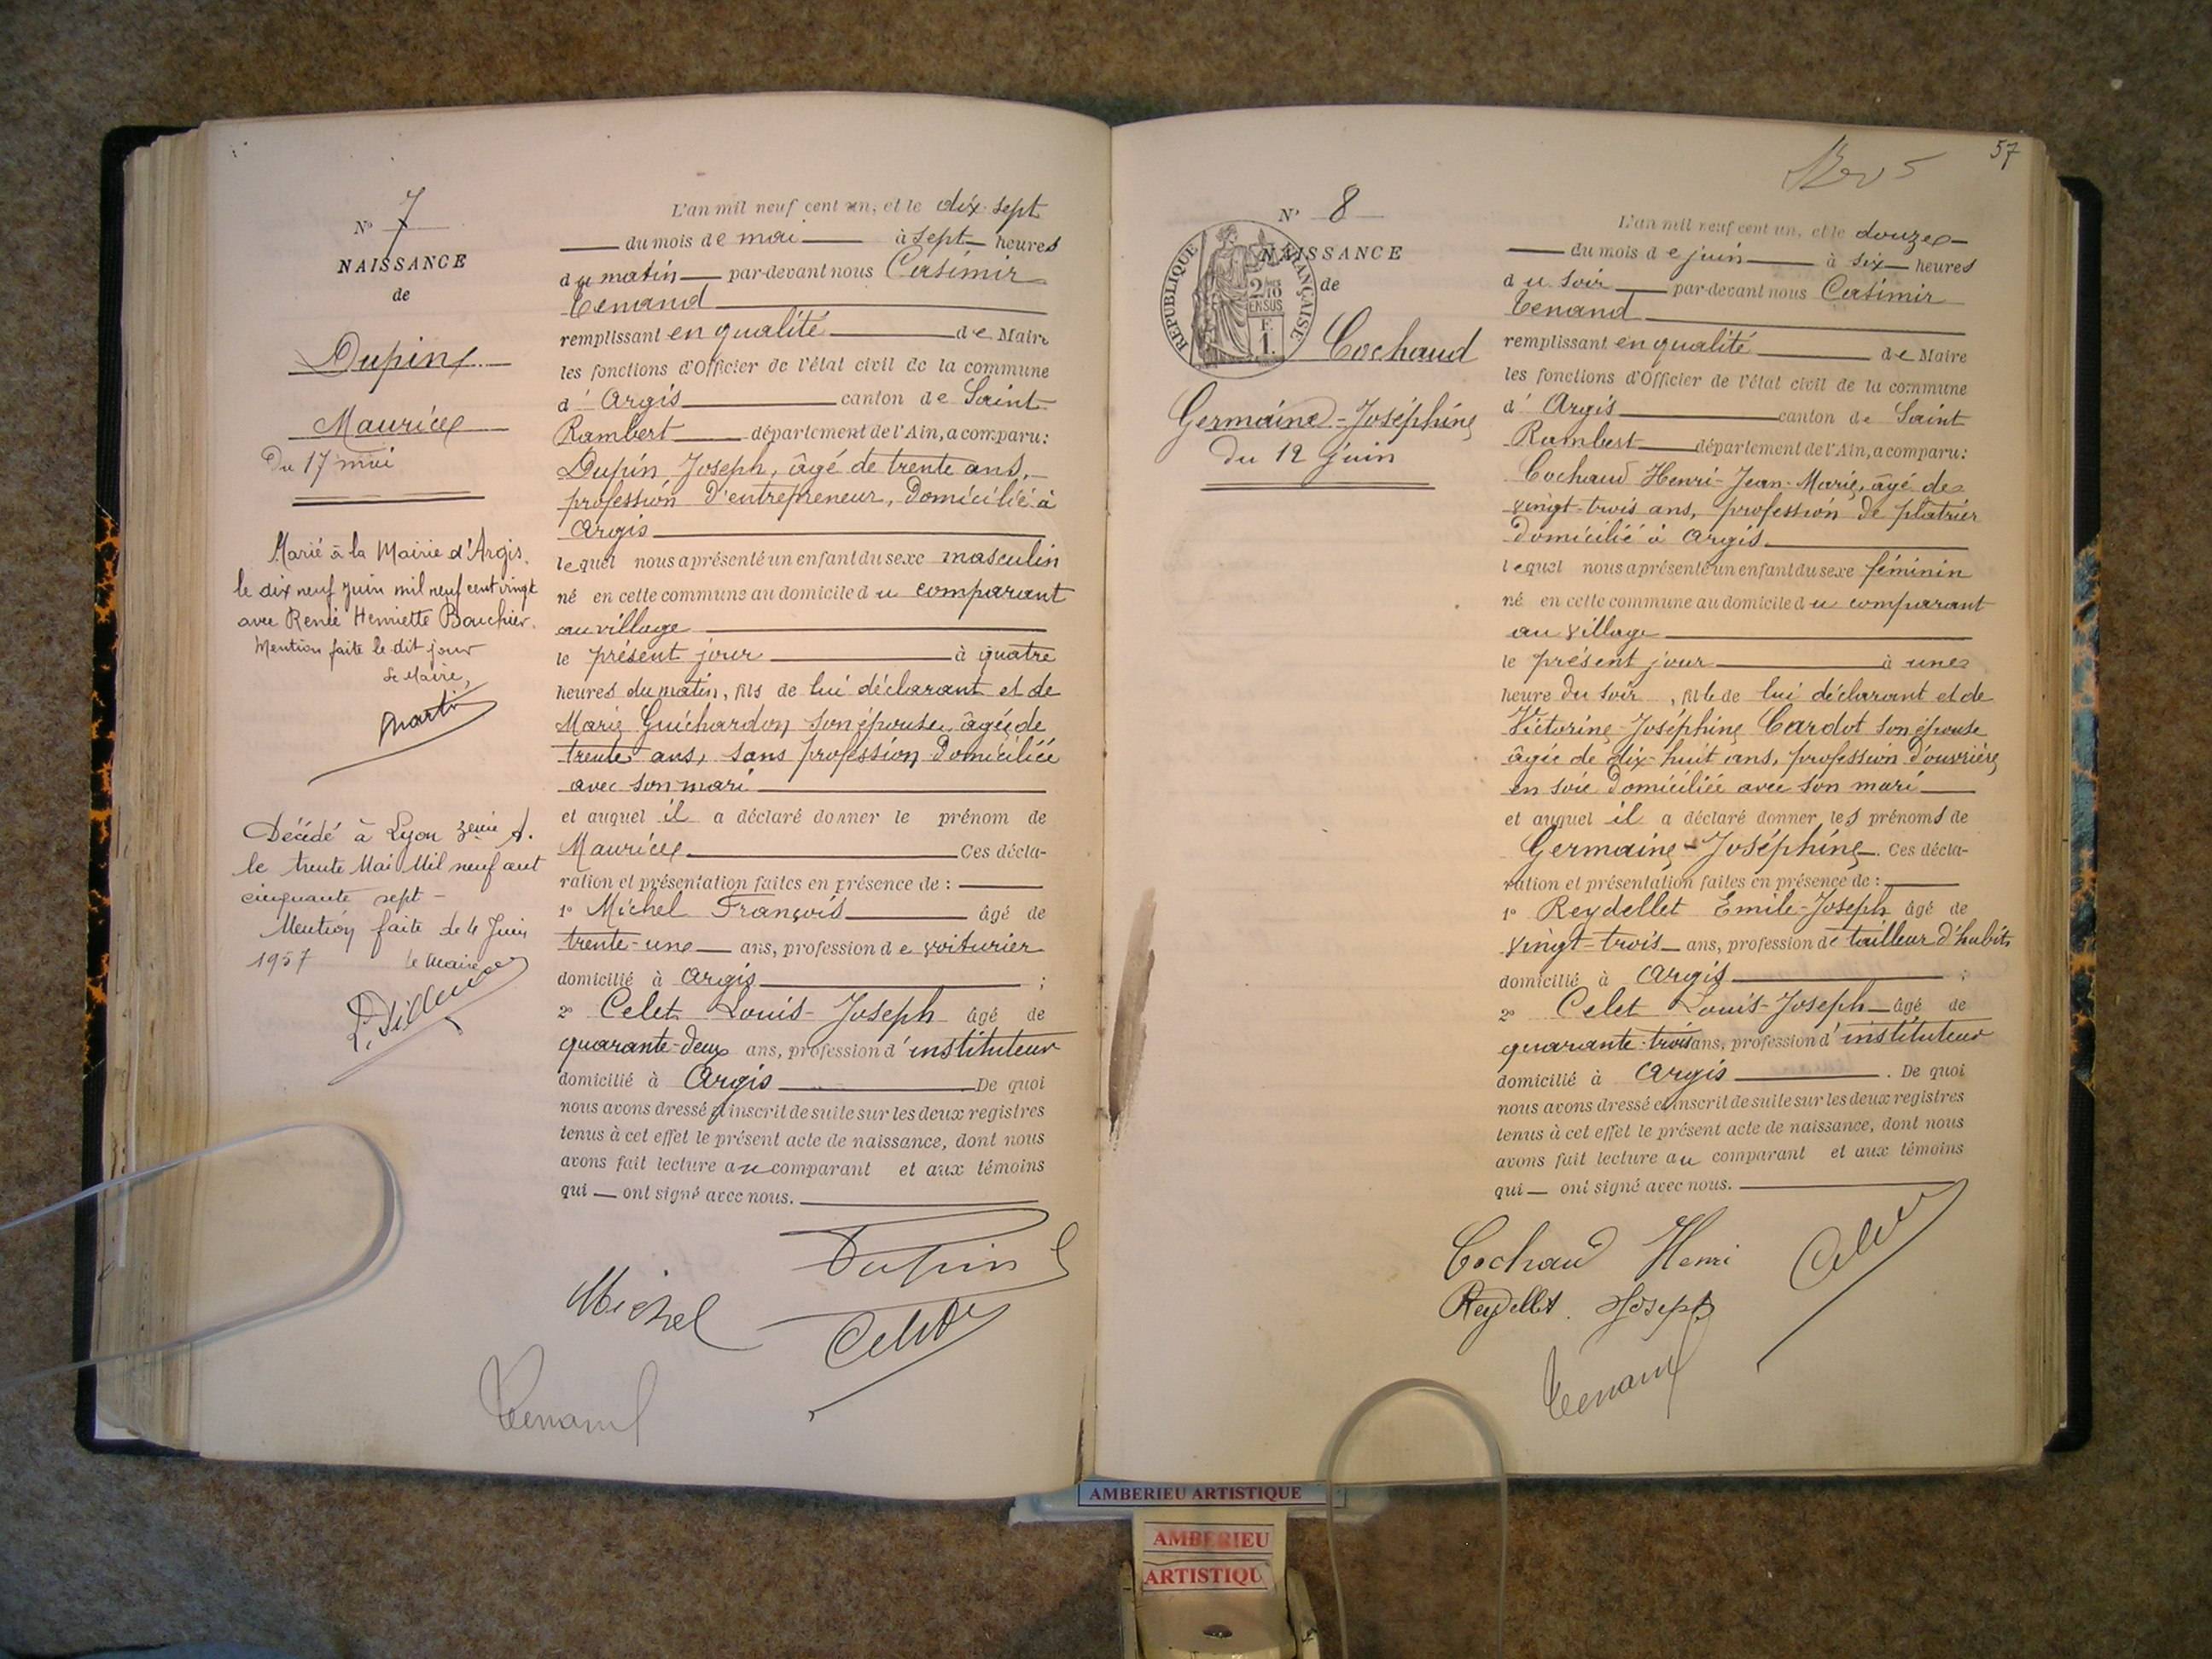 N° 7
NAISSANCE
de
Dupin
Maurice
Du 17 mai
Marié à la Mairie d'Argis
le dix neuf juin mil neuf cent vingt
avec Renée Henriette Bouchier.
Mention faite le dit jour
Le Maire,
Martin
Décédé à Lyon 3eme A.
le trente Mai Mil neuf cent
cinquante sept -
Mention faite le 4 Juin
1957 le Maire
L'an mil neuf cent un, et le dix-sept
du mois de mai à sept heures
du matin par-devant nous Casimir
Tenand
remplissant en qualité de Maire
les fonctions d'Officier de l'état civil de la commune
d' Argis canton de Saint-
Rambert département de l'Ain, a comparu:
Dupin Joseph, âgé de trente ans,
profession d'entrepreneur, domicilié à
Argis
lequel nous a présenté un enfant du sexe masculin
né en cette commune au domicile du comparant
au village
le présent jour à quatre
heures du matin, fils de lui déclarant et de
Marie Guichardon son épouse, âgée de
trente ans, sans profession domiciliée
avec son mari
et auquel il a déclaré donner le prénom de
Maurice Ces décla-
ration et présentation faites en présence de :
1° Michel François âgé de
trente-un ans, profession de voiturier
domicilié à Argis ;
2° Celet Louis-Joseph âgé de
quarante-deux ans, profession d'instituteur
domicilié à Argis De quoi
nous avons dressé et inscrit de suite sur les deux registres
tenus à cet effet le présent acte de naissance, dont nous
avons fait lecture au comparant et aux témoins
qui — ont signé avec nous.
Dupin
Michel
Celet
Tenand
57
N° 8
NAISSANCE
de
RÉPUBLIQUE FRANÇAISE
2/10
EN SUS
F.
1.
Cochaud
Germaine-Joséphine
du 12 juin
L'an mil neuf cent un, et le douze
du mois de juin à six heures
du soir par-devant nous Casimir
Tenand
remplissant en qualité de Maire
les fonctions d'Officier de l'état civil de la commune
d' Argis canton de Saint
Rambert département de l'Ain, a comparu:
Cochaud Henri-Jean-Marie, âgé de
vingt-trois ans, profession de platrier
domicilié à Argis
lequel nous a présenté un enfant du sexe féminin
né en cette commune au domicile du comparant
au village
le présent jour à une
heure du soir, fille de lui déclarant et de
Victorine-Joséphine Cardot son épouse
âgée de dix-huit ans, profession d'ouvrière
en soie domiciliée avec son mari
et auquel il a déclaré donner les prénoms de
Germaine-Joséphine. Ces décla-
ration et présentation faites en présence de :
1° Reydellet Emile-Joseph âgé de
vingt-trois ans, profession de tailleur d'habits
domicilié à Argis ;
2° Celet Louis-Joseph âgé de
quarante-trois ans, profession d'instituteur
domicilié à Argis . De quoi
nous avons dressé et inscrit de suite sur les deux registres
tenus à cet effet le présent acte de naissance, dont nous
avons fait lecture au comparant et aux témoins
qui — ont signé avec nous.
Cochaud Henri
Celet
Reydellet Joseph
Tenand
AMBERIEU ARTISTIQUE
AMBERIEU
ARTISTIQU